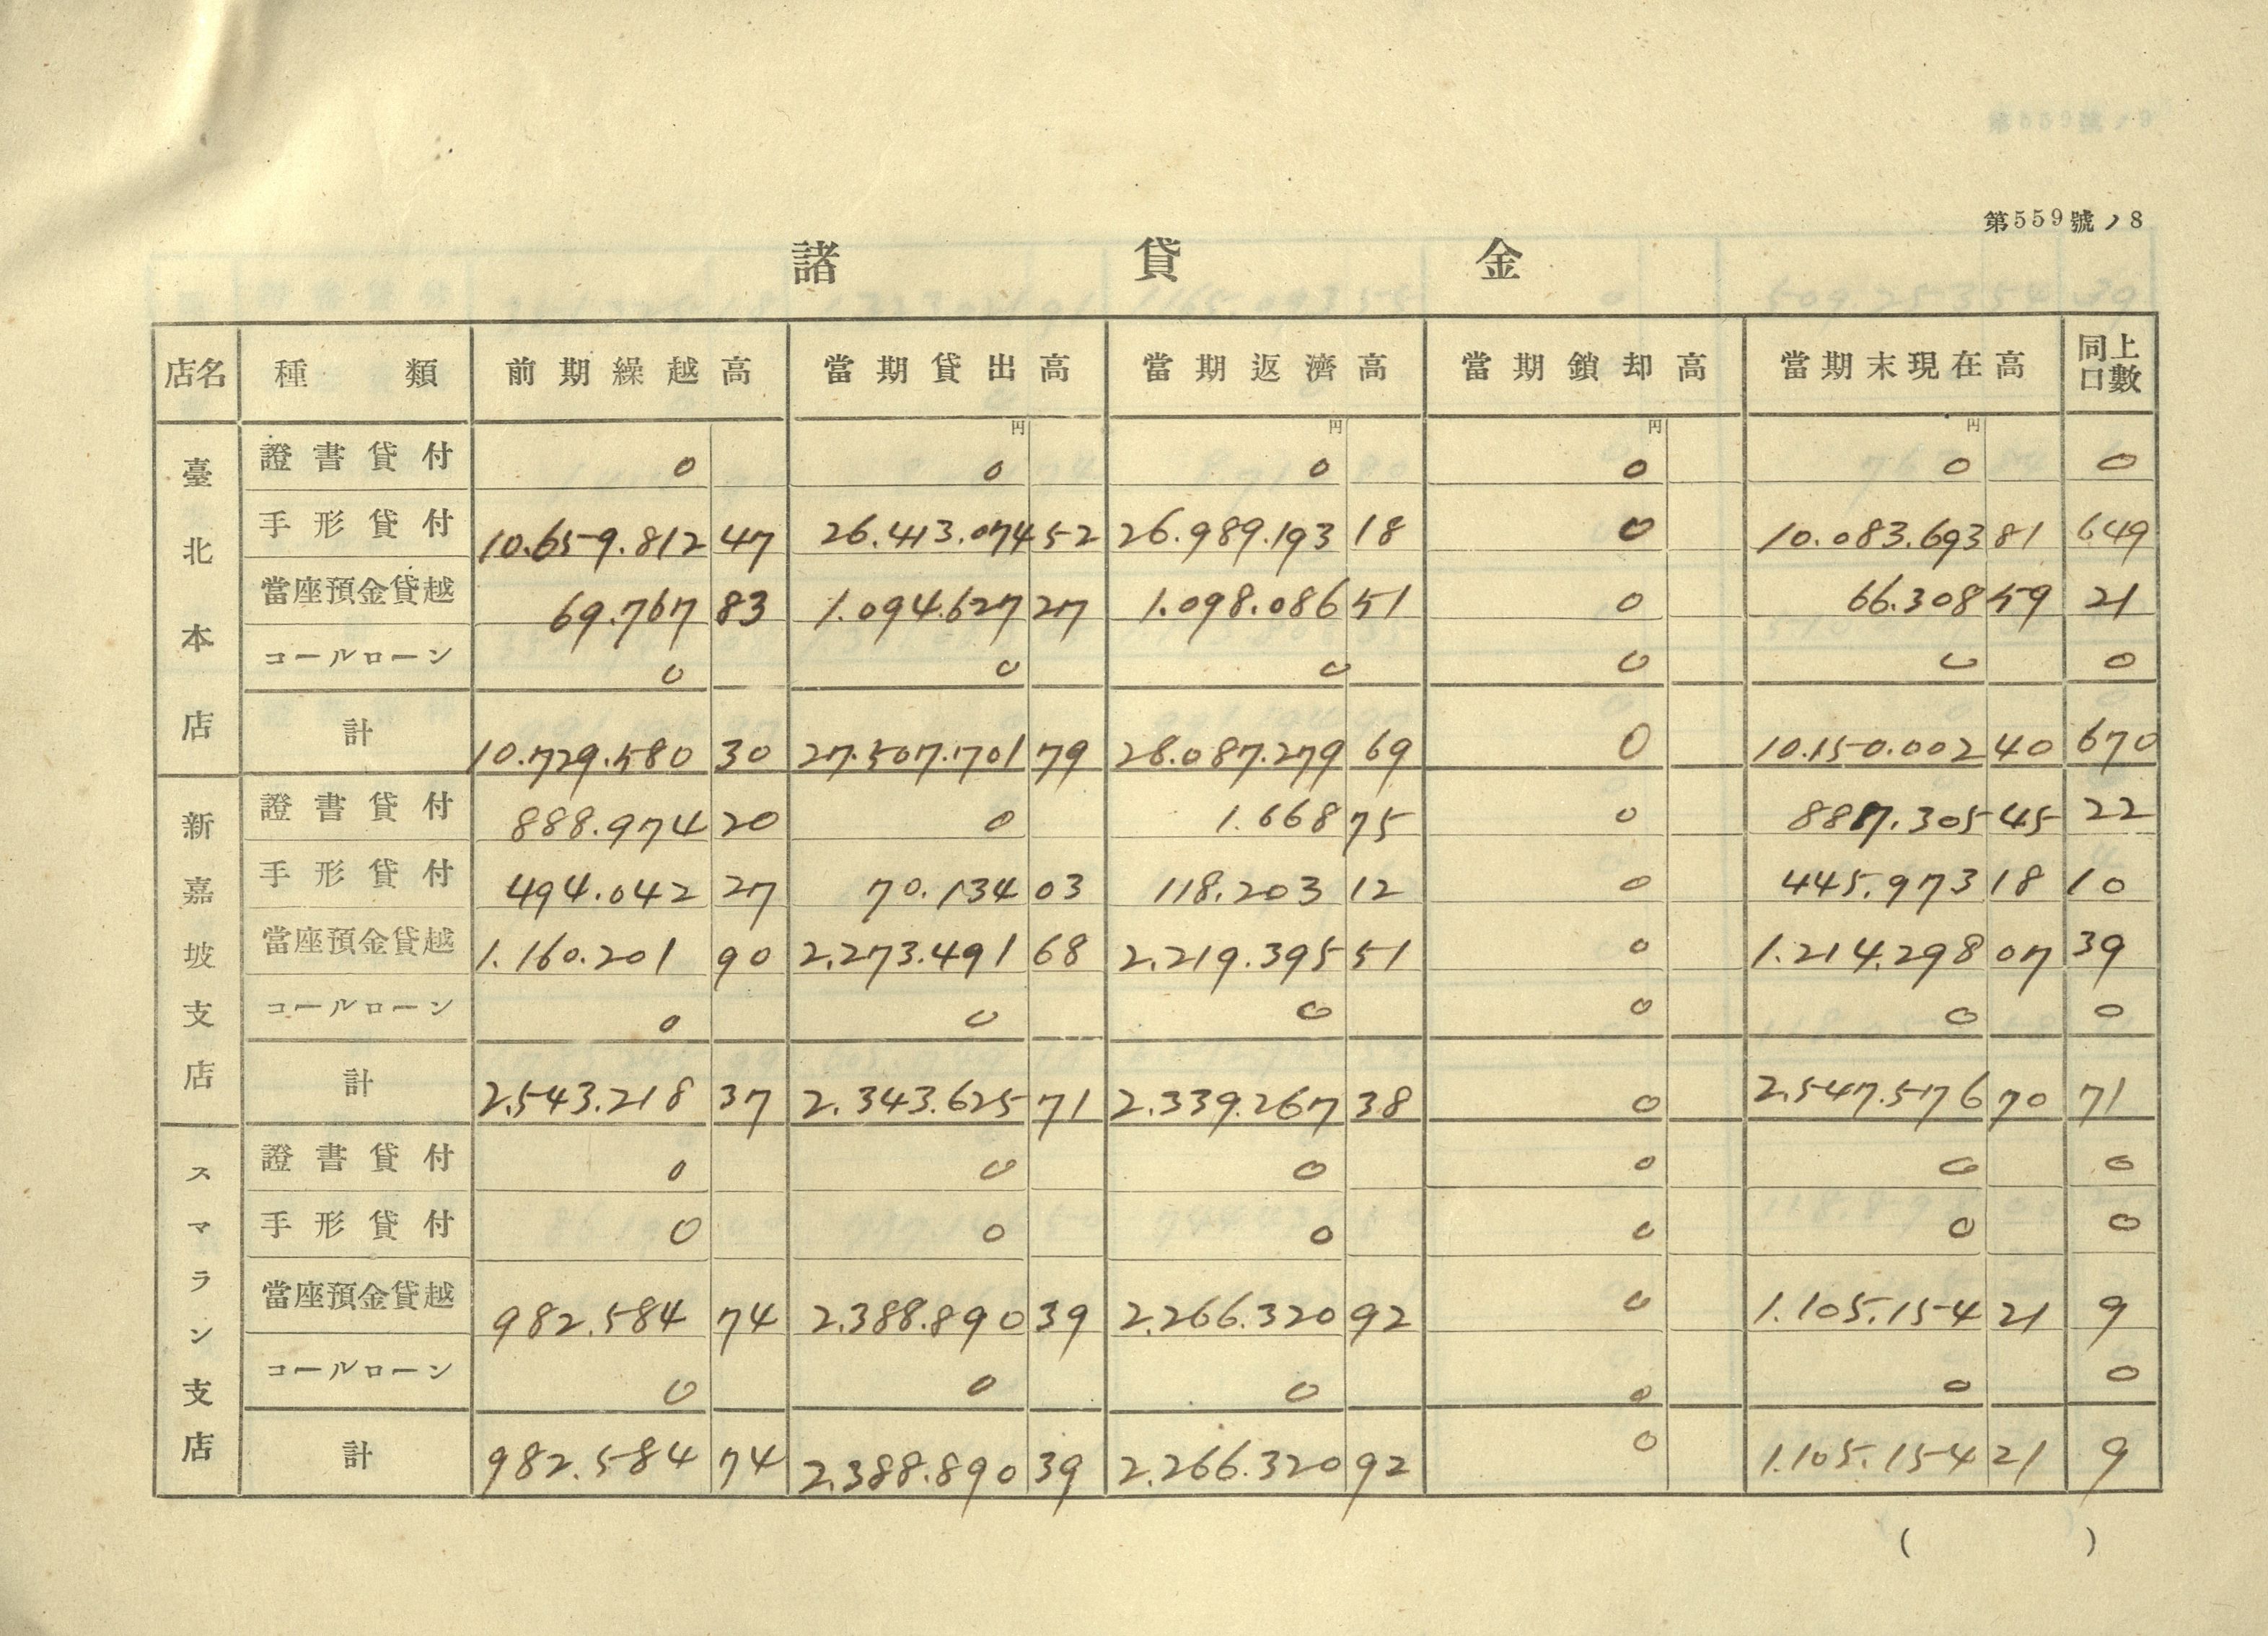 第559號ノ8
諸貸金
店名 種類 前期繰越高 當期貸出高 當期返濟高 當期鎖却高 當期末現在高 同上口數
円 円 円 円
臺北本店
證書貸付 0 0 0 0 0 0
手形貸付 10.659.812 47 26.413.074 52 26.989.193 18 0 10.083.693 81 649
當座預金貸越 69.767 83 1.094.627 27 1.098.086 51 0 66.308 59 21
コールローン 0 0 0 0 0 0
計 10.729.580 30 27.507.701 79 28.087.279 69 0 10.150.002 40 670
新嘉坡支店
證書貸付 888.974 20 0 1.668 75 0 887.305 45 22
手形貸付 494.042 27 70.134 03 118.203 12 0 445.973 18 10
當座預金貸越 1.160.201 90 2.273.491 68 2.219.395 51 0 1.214.298 07 39
コールローン 0 0 0 0 0 0
計 2.543.218 37 2.343.625 71 2.339.267 38 0 2.547.576 70 71
スマラン支店
證書貸付 0 0 0 0 0 0
手形貸付 0 0 0 0 0 0
當座預金貸越 982.584 74 2.388.890 39 2.266.320 92 0 1.105.154 21 9
コールローン 0 0 0 0 0 0
計 982.584 74 2.388.890 39 2.266.320 92 0 1.105.154 21 9
( )